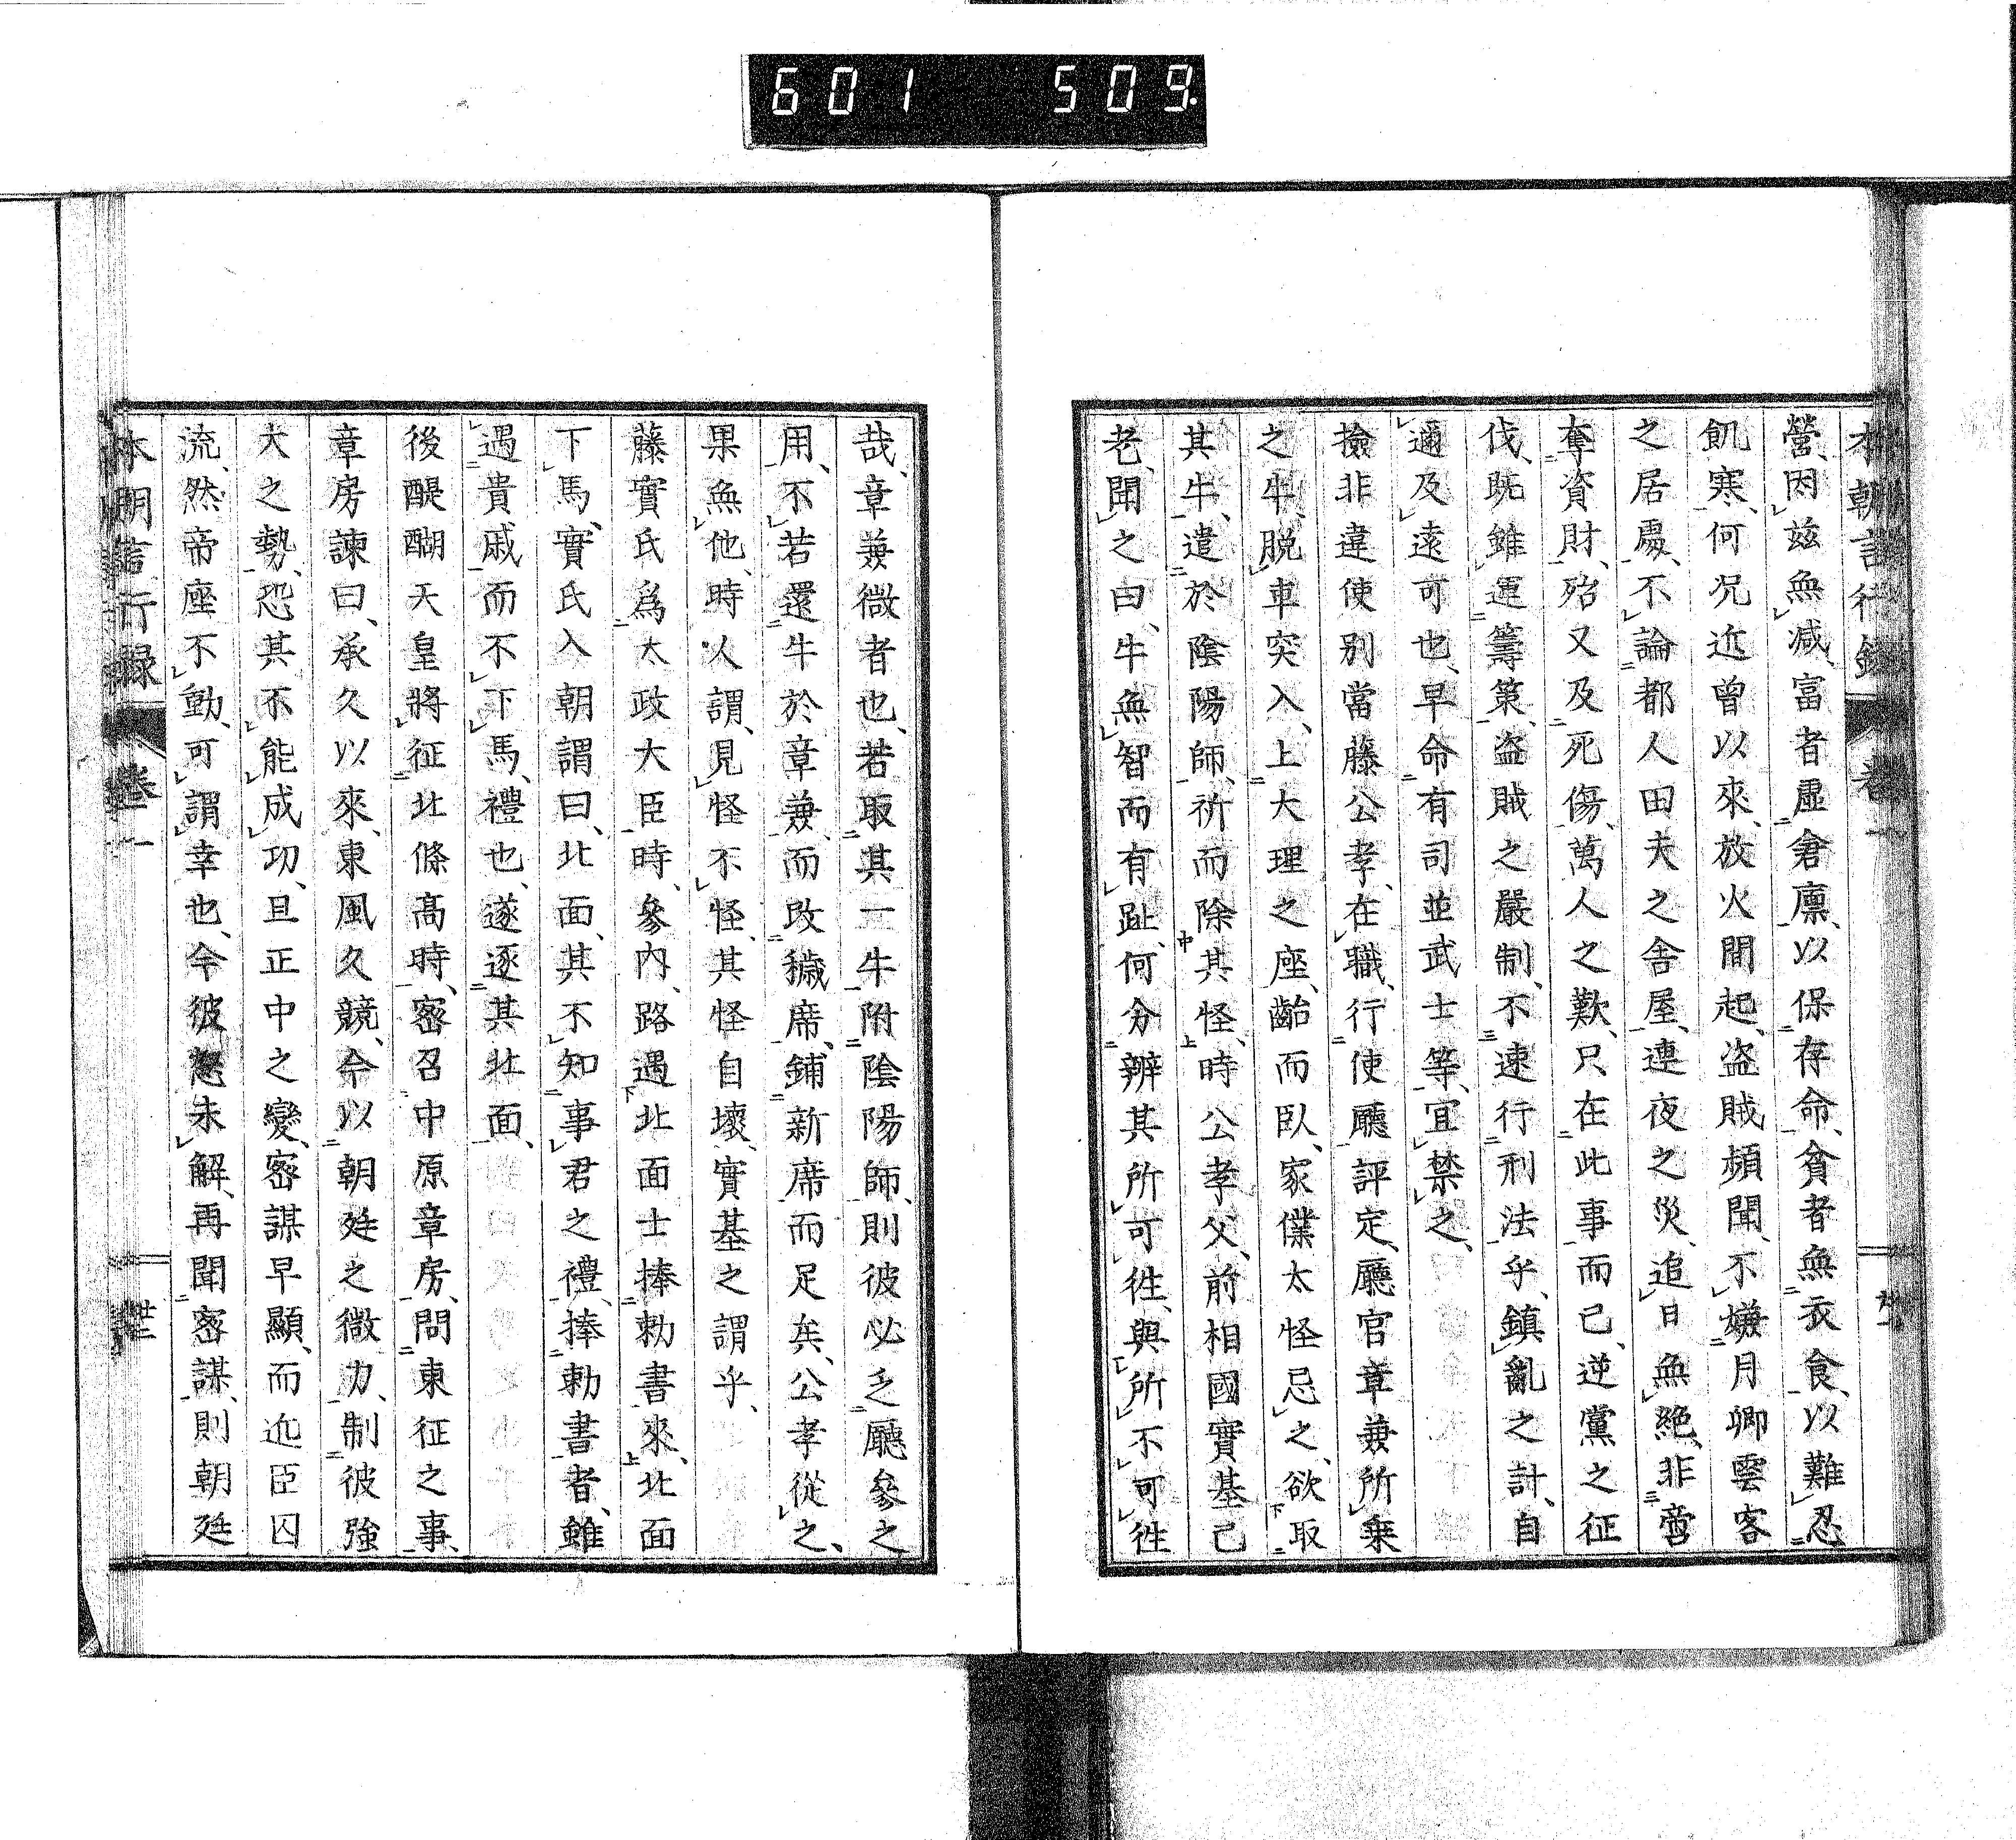 601 509
本朝言行録 卷一
營、因茲無減、富者虛倉廩、以保存命、貧者無衣食、以難忍
飢寒、何况近曾以來、放火間起、盗賊頻聞、不嫌月卿雲客
之居處、不論都人田夫之舍屋、連夜之災、追日無絶、非啻
奪資財、殆又及死傷、萬人之歎、只在此事而已、逆黨之征
伐、既雖運籌策、盗賊之嚴制、不速行刑法乎、鎮亂之計、自
邇及遠可也、早命有司並武士等、宜禁之、
撿非違使別當藤公孝、在職、行使廳評定、廳官章兼所乗
之牛、脱車突入、上大理之座、齝而臥、家僕太怪忌之、欲取
其牛、遣於陰陽師、祈而除其怪、時公孝父、前相國實基已
老、聞之曰、牛無智而有趾、何分辨其所可徃、與所不可徃
哉、章兼微者也、若取其一牛附陰陽師、則彼必乏廳參之
用、不若還牛於章兼、而改穢席、鋪新席而足矣、公孝從之、
果無他、時人謂、見怪不怪、其怪自壞、實基之謂乎、
藤實氏爲太政大臣時、參内、路遇北面士捧勅書來、北面
下馬、實氏入朝謂曰、北面、其不知事君之禮、捧勅書者、雖
遇貴戚而不下馬、禮也、遂逐其北面、
後醍醐天皇將征北條髙時、密召中原章房、問東征之事、
章房諫曰、承久以來、東風久競、今以朝廷之微力、制彼強
大之勢、恐其不能成功、且正中之變、密謀早顯、而近臣囚
流、然帝座不動、可謂幸也、今彼怒未解、再聞密謀、則朝廷
本朝言行録 卷一 卅二